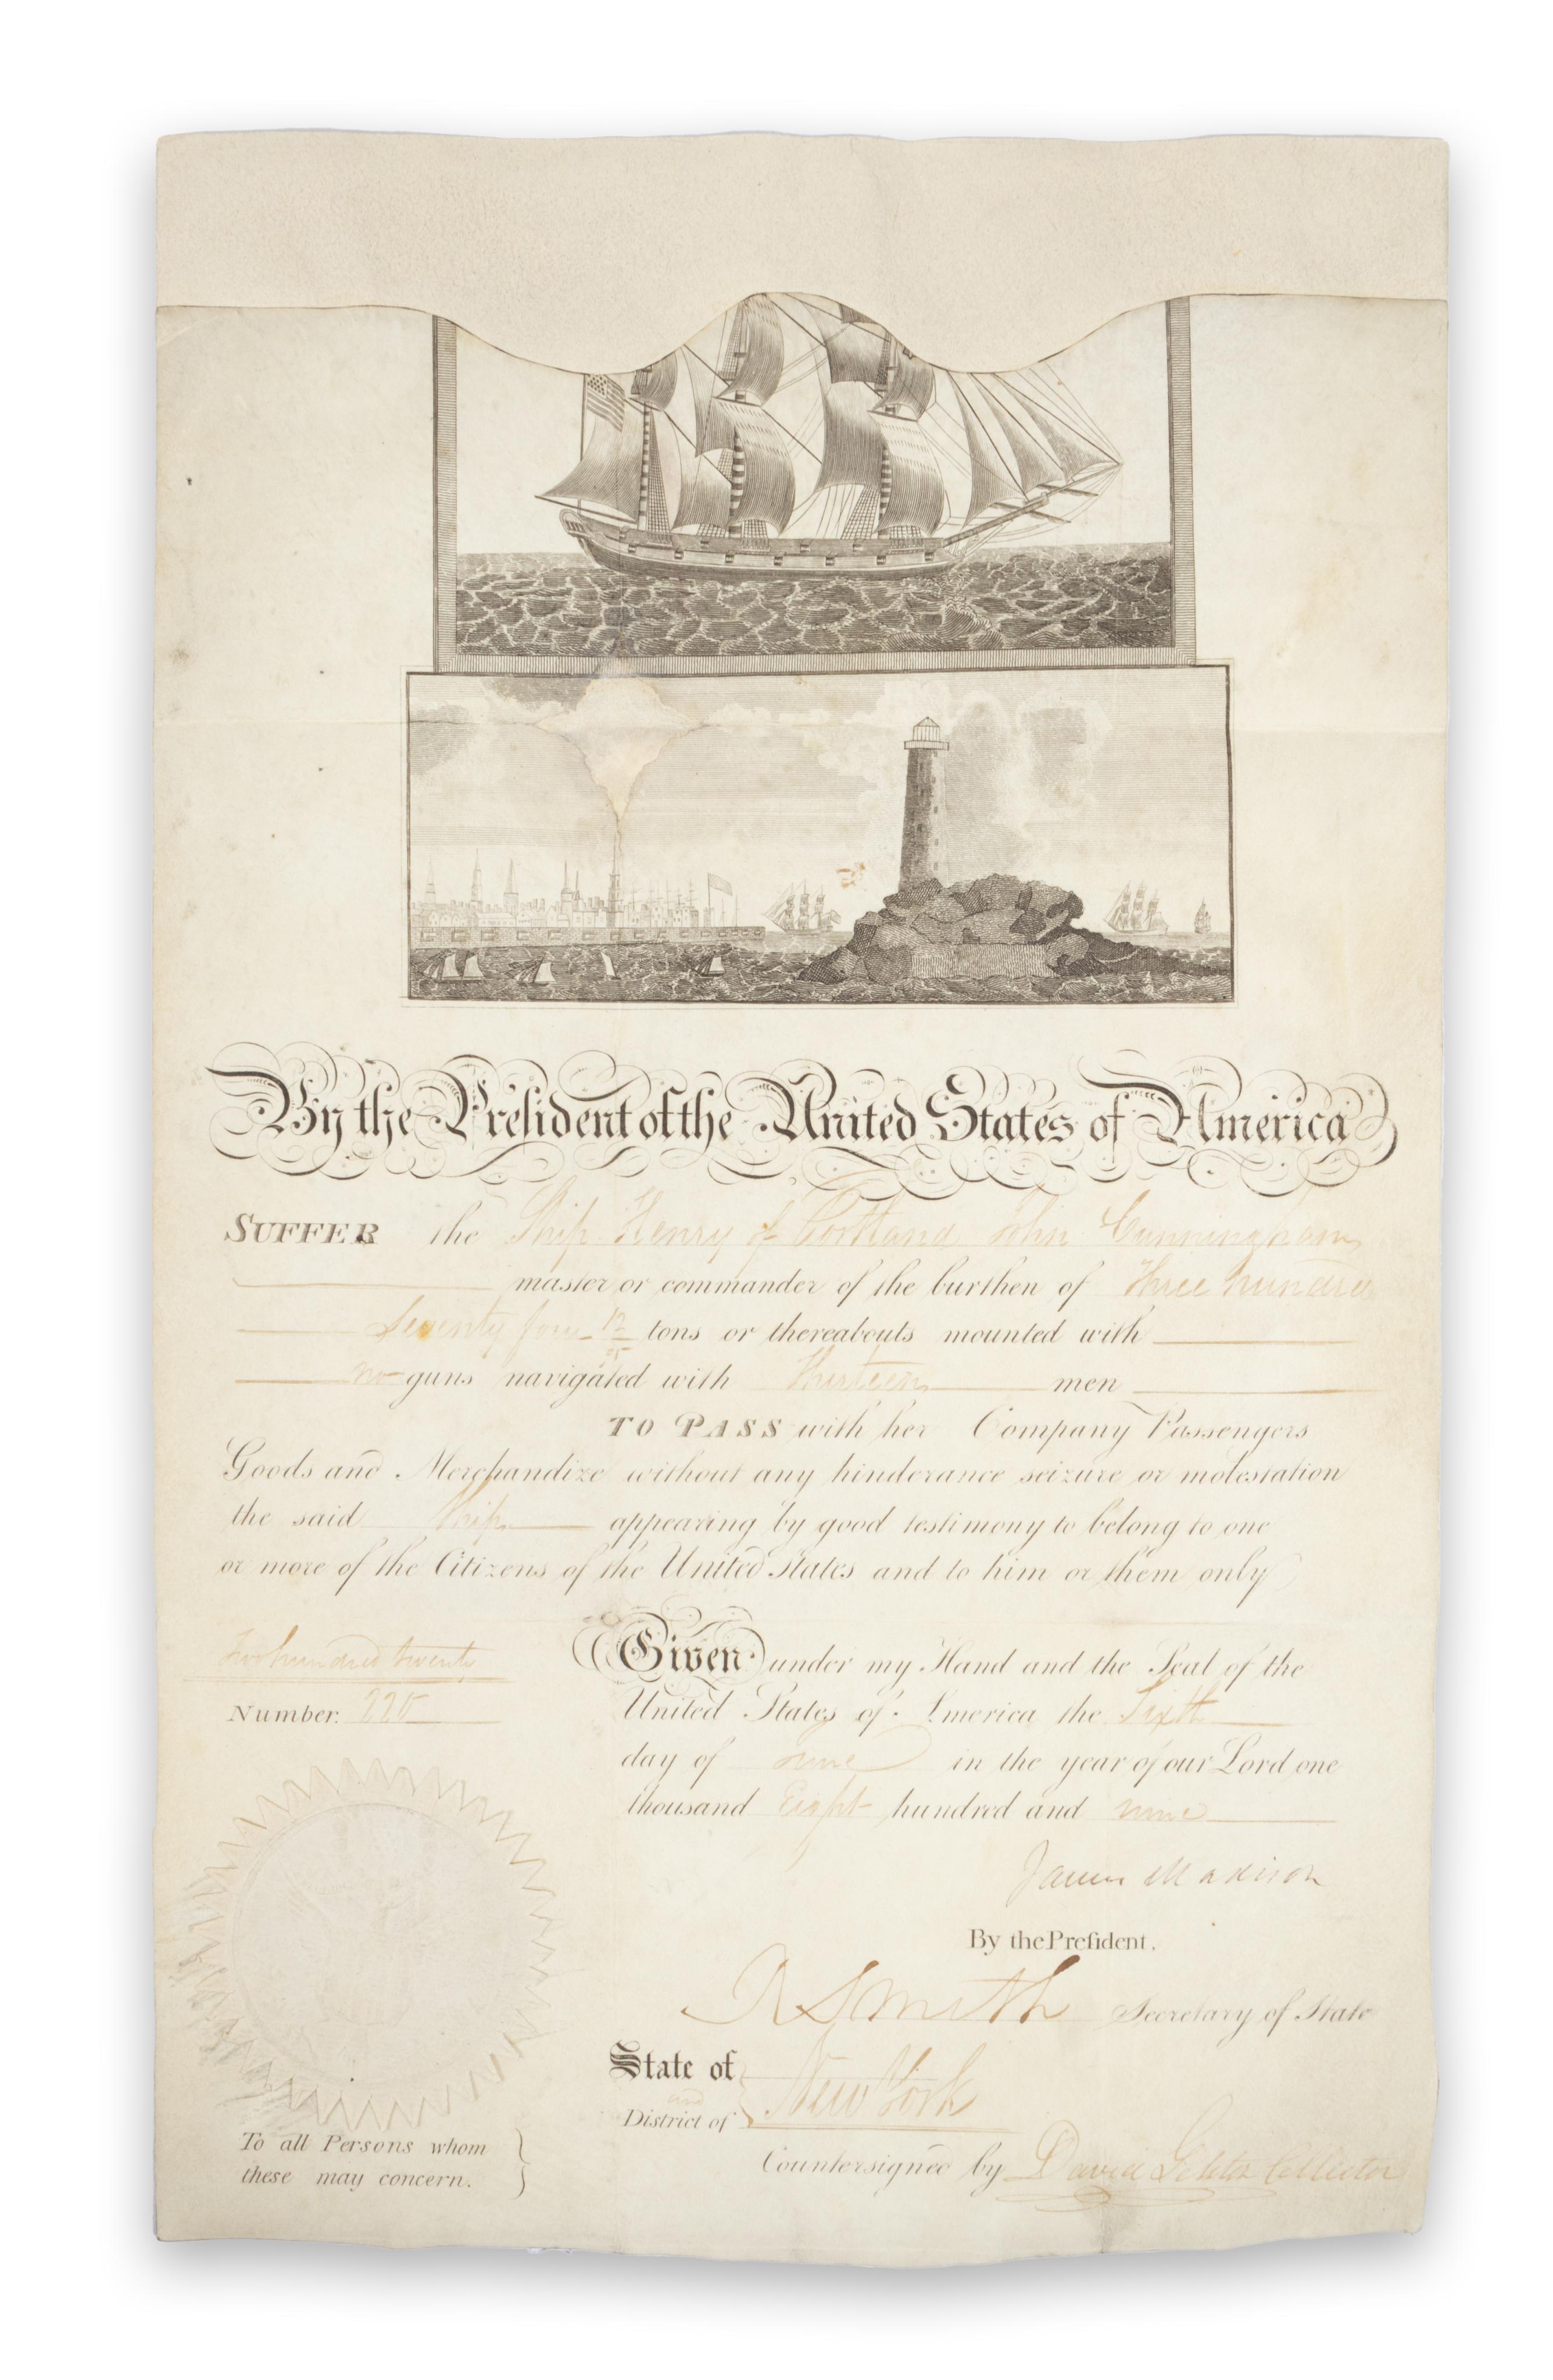 By the Preſident of the United States of America
SUFFER the Ship Henry of Portland John Cunningham
master or commander of the burthen of Three hundred
Seventy four 12/95 tons or thereabouts mounted with
no guns navigated with Thirteen men
TO PASS with her Company Passengers
Goods and Merchandize without any hinderance seizure or molestation
the said Ship appearing by good testimony to belong to one
or more of the Citizens of the United States and to him or them only
Two hundred twenty
Number.
Given under my Hand and the Seal of the
United States of America the Sixth
day of June in the year of our Lord one
thousand Eight hundred and nine
James Madison
By the Preſident.
R Smith Secretary of State
State of
and New York
District of
Countersigned by David Gelston Collector
To all Persons whom
these may concern.